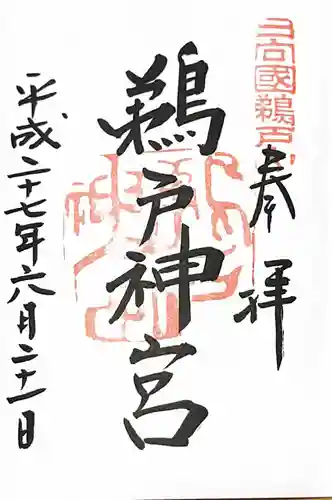 日向國鵜戸
奉拝
鵜戸神宮
平成二十七年六月二十一日